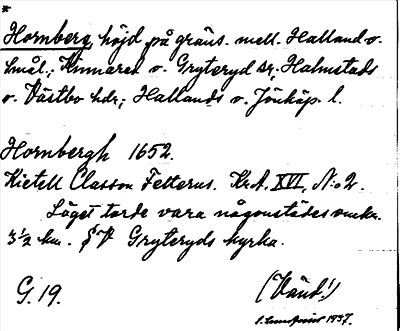 *
Hornberg, höjd på gräns. mell. Halland o.
Smål.; Kinnared o. Gryteryd sr; Halmstads
o. Västbo hdr; Hallands o. Jönköp. l.
Hornbergh 1652.
Kietell Classon Felterus. Krt. XVI, N:o 2.
Läget torde vara någonstädes omkr.
3½ km. SV Gryteryds kyrka.
G. 19.
(Vänd!)
1937.